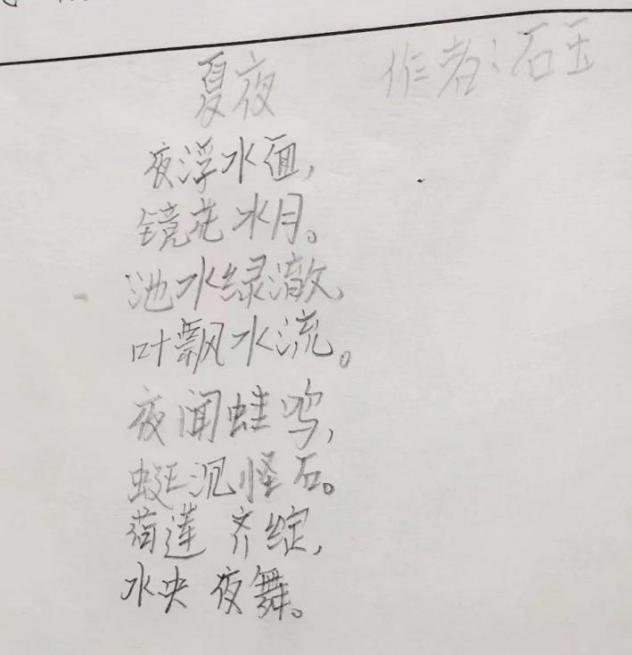 夏夜 作者:石玉
夜浮水面,
镜花水月。
池水绿澈,
叶飘水流。
夜闻蛙鸣,
蜓沉怪石。
荷莲齐绽,
水央夜舞。